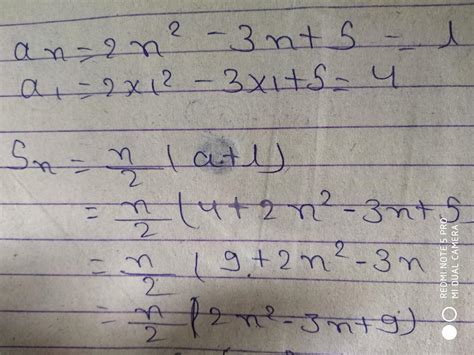 an = 2n² - 3n + 5 = l
a₁ = 2×1² - 3×1 + 5 = 4
Sn = n/2 (a+l)
= n/2 (4 + 2n² - 3n + 5
= n/2 (9 + 2n² - 3n
= n/2 (2n² - 3n + 9)
REDMI NOTE 5 PRO
MI DUAL CAMERA